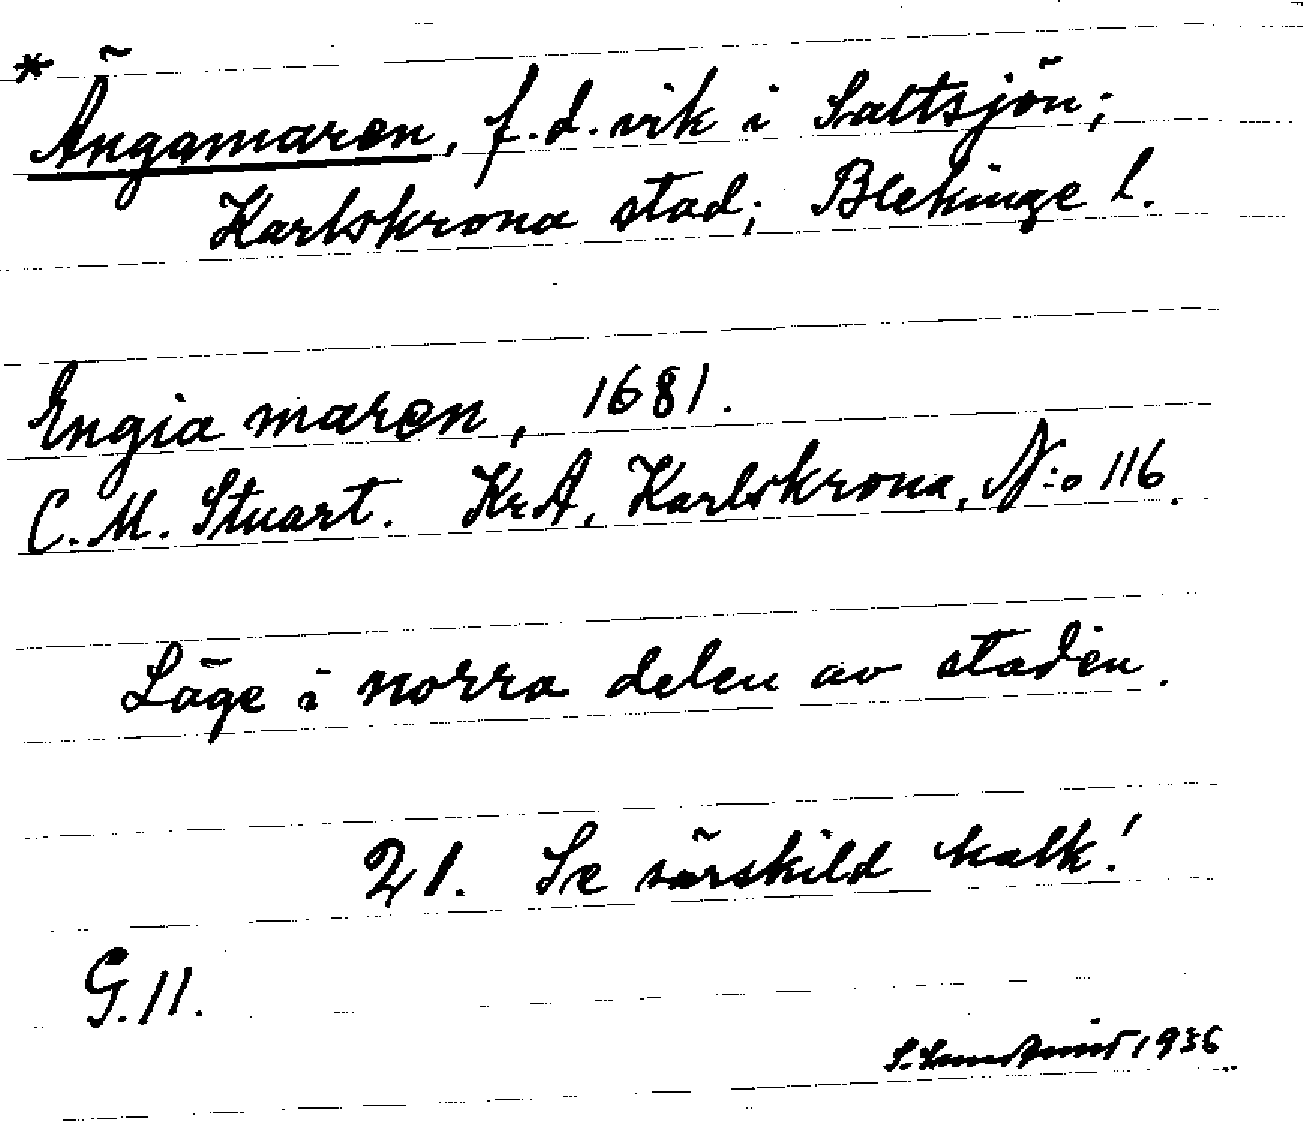 * Ängamaren, f.d. vik i Saltsjön;
Karlskrona stad; Blekinge l.
Engia maren, 1681.
C. M. Stuart. Kr.A, Karlskrona, N:o 116.
Läge i norra delen av staden.
21. Se särskild kalk!
G.11.
1936